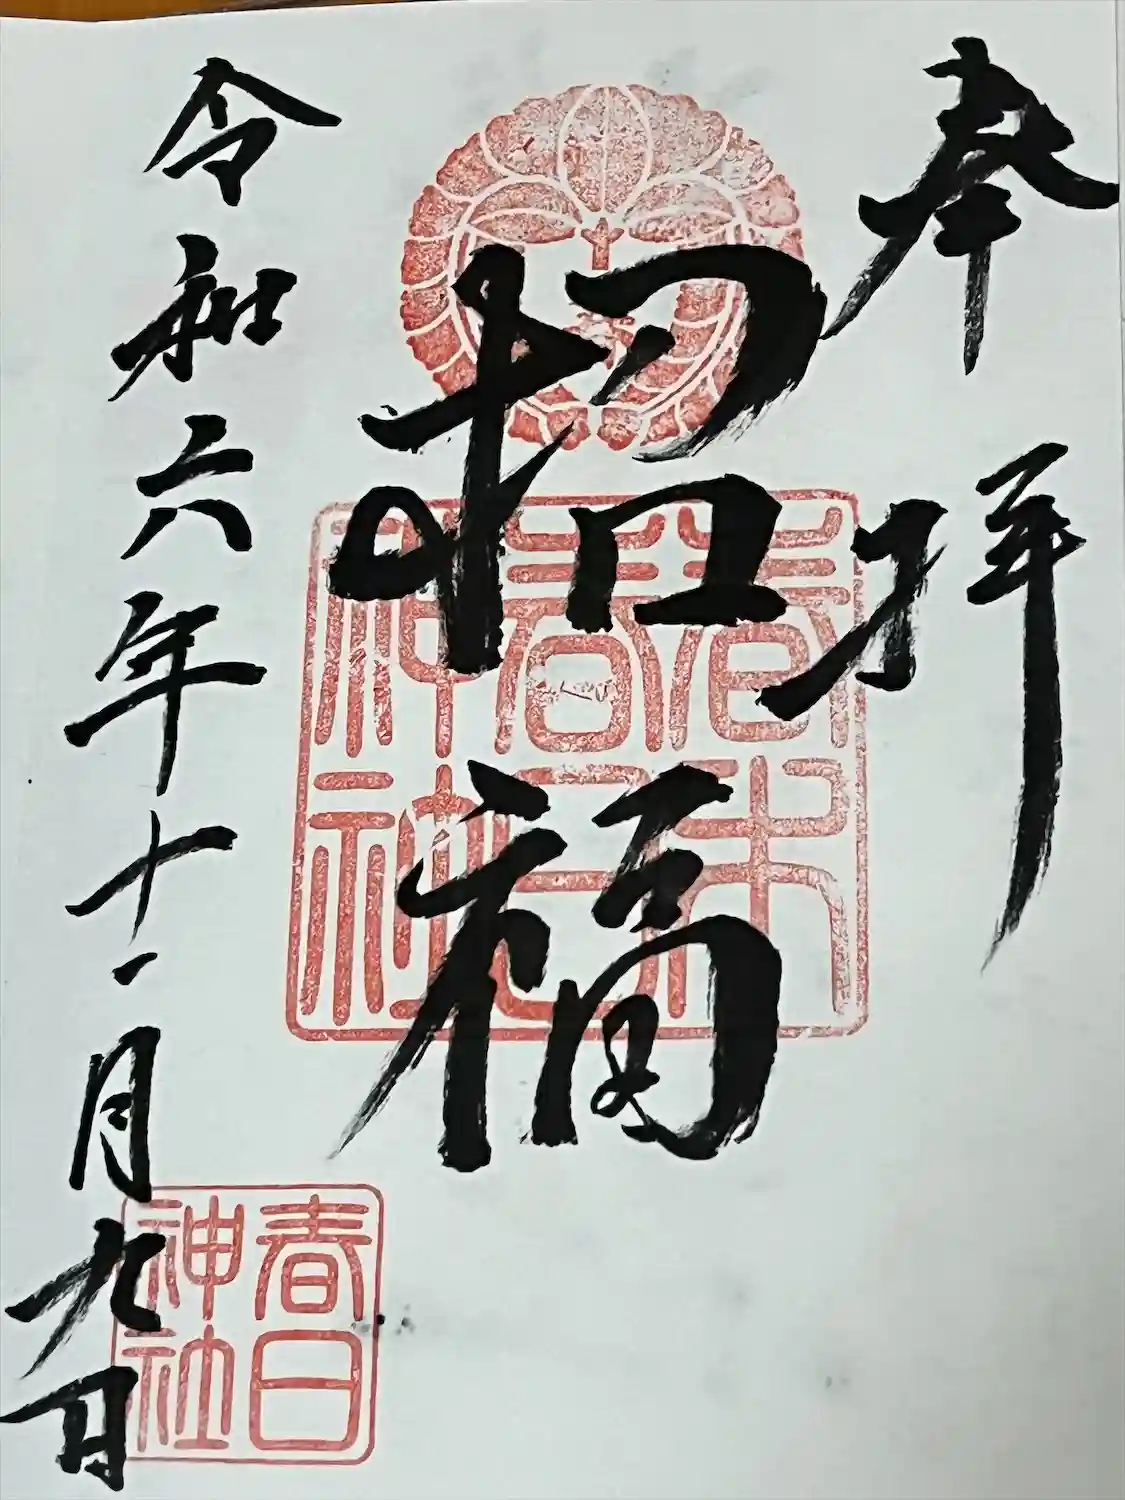 奉拝
招福
春日
神社
令和六年十一月九日
春日
神社